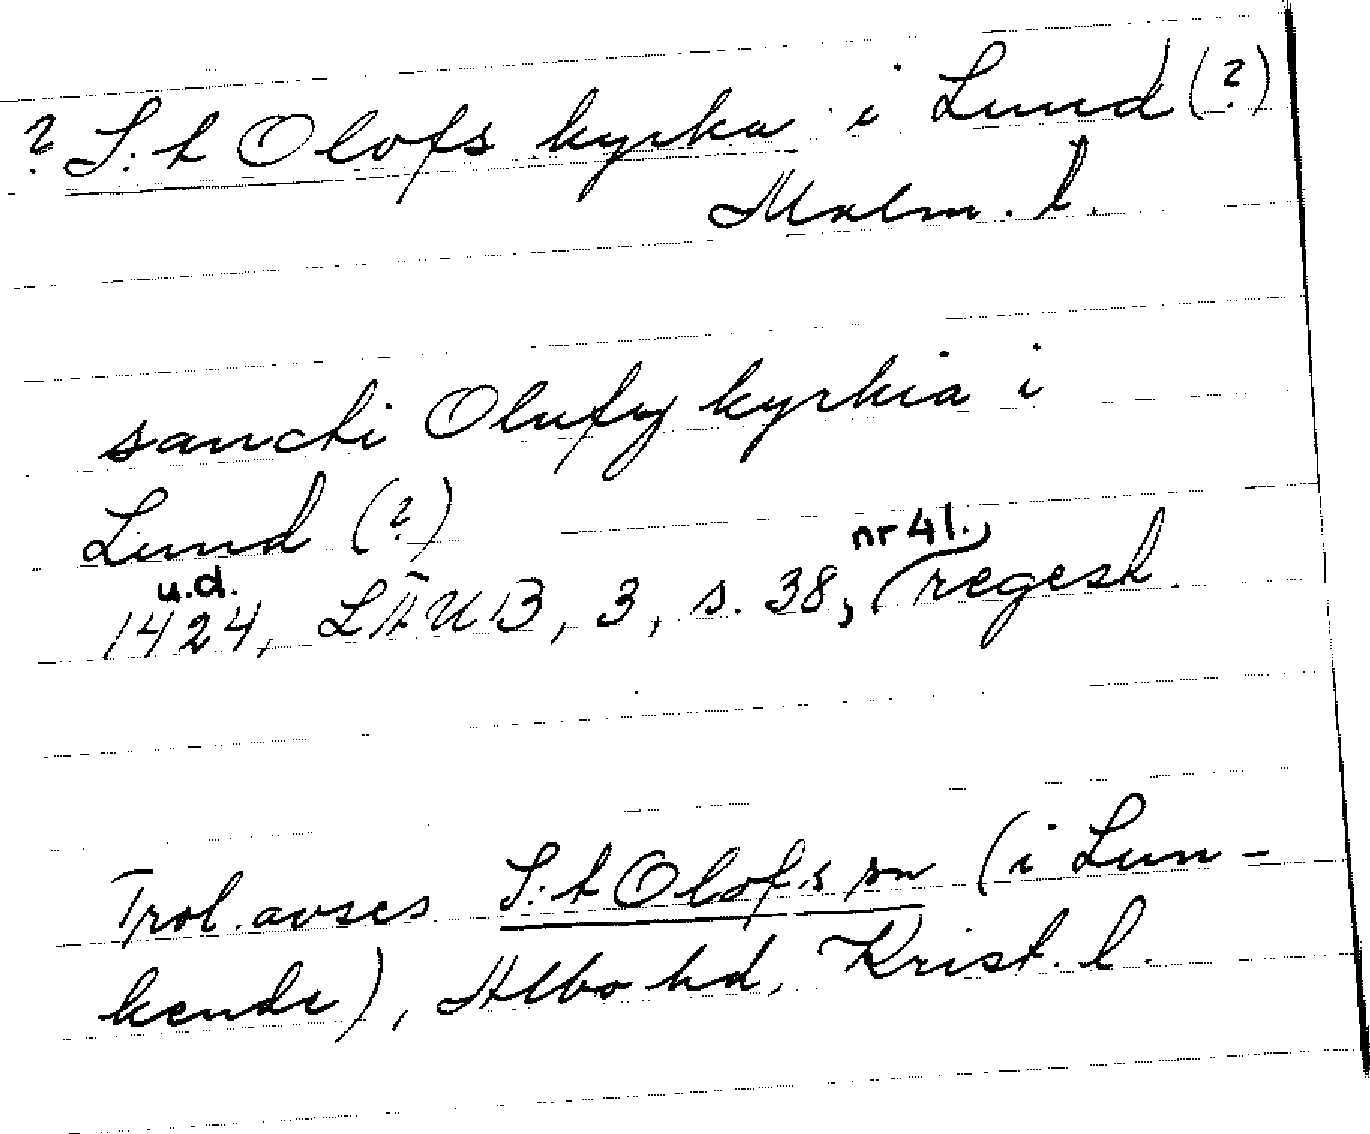 ? S:t Olofs kyrka i Lund (?)
Malm. l.
sancti Olufy kyrkia i
Lund (?)
u.d. nr 41.
1424, LÄUB, 3, s. 38, regest.
Trol. avses S:t Olofs sn (i Lun-
kende), Albo hd, Krist. l.